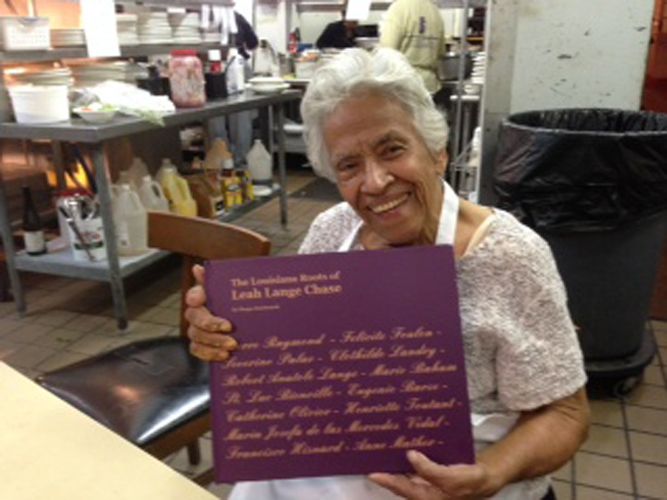 The Louisiana Roots of
Leah Lange Chase
Raymond - Felicite Foulon -
Severine Palao - Clothilde Landry -
Robert Anatole Lange - Marie Raham
St. Luc Bienville - Eugenie Barse -
Catherine Olivier - Henriette Toutant -
Maria Josefa de las Mercedes Vidal -
Francisco Hisnard - Anne Mather -